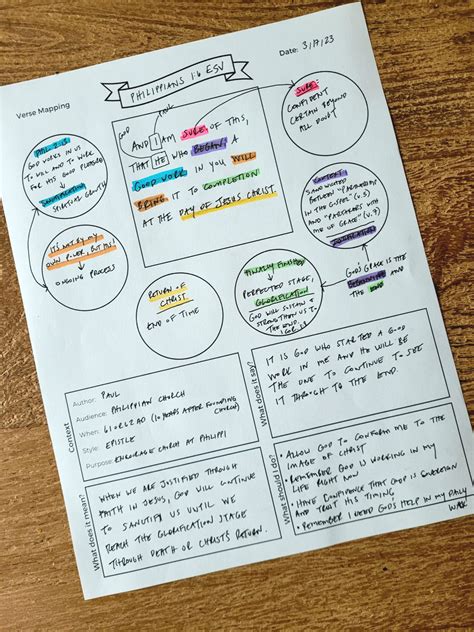 Verse Mapping
Date: 3/17/23
PHILIPPIANS 1:6 ESV
GOD
PAUL
AND I AM SURE OF THIS,
THAT HE WHO BEGAN A
GOOD WORK IN YOU WILL
BRING IT TO COMPLETION
AT THE DAY OF JESUS CHRIST.
SURE:
CONFIDENT
CERTAIN BEYOND
ALL DOUBT
PHIL 2:13
GOD WORKS IN US
TO WILL AND TO WORK
FOR HIS GOOD PLEASURE
SANCTIFICATION
SPIRITUAL GROWTH
IT'S NOT BY MY
OWN POWER, BUT HIS!
ONGOING PROCESS
RETURN OF
CHRIST
END OF TIME
FINALLY FINISHED
PERFECTED STAGE,
GLORIFICATION
GOD WILL SUSTAIN &
STRENGTHEN US TO
THE END
1 COR 1:8
CONTEXT:
SANDWICHED
BETWEEN "PARTNERSHIP
IN THE GOSPEL" (V.5)
AND "PARTAKERS WITH
ME OF GRACE" (V.7)
GOD'S GRACE IS THE
BEGINNING AND
THE END
Context
Author: PAUL
Audience: PHILIPPIAN CHURCH
When: 61 OR 62 AD (10 YEARS AFTER FOUNDING
CHURCH)
Style: EPISTLE
Purpose: ENCOURAGE CHURCH AT PHILIPPI
What does it say?
IT IS GOD WHO STARTED A GOOD
WORK IN ME AND HE WILL BE
THE ONE TO CONTINUE TO SEE
IT THROUGH TO THE END.
What does it mean?
WHEN WE ARE JUSTIFIED THROUGH
FAITH IN JESUS, GOD WILL CONTINUE
TO SANCTIFY US UNTIL WE
REACH THE GLORIFICATION STAGE
THROUGH DEATH OR CHRIST'S RETURN.
What should I do?
• ALLOW GOD TO CONFORM ME TO THE
IMAGE OF CHRIST
• REMEMBER GOD IS WORKING IN MY
LIFE RIGHT NOW
• HAVE CONFIDENCE THAT GOD IS SOVEREIGN
AND TRUST HIS TIMING
• REMEMBER I NEED GOD'S HELP IN MY DAILY
WALK